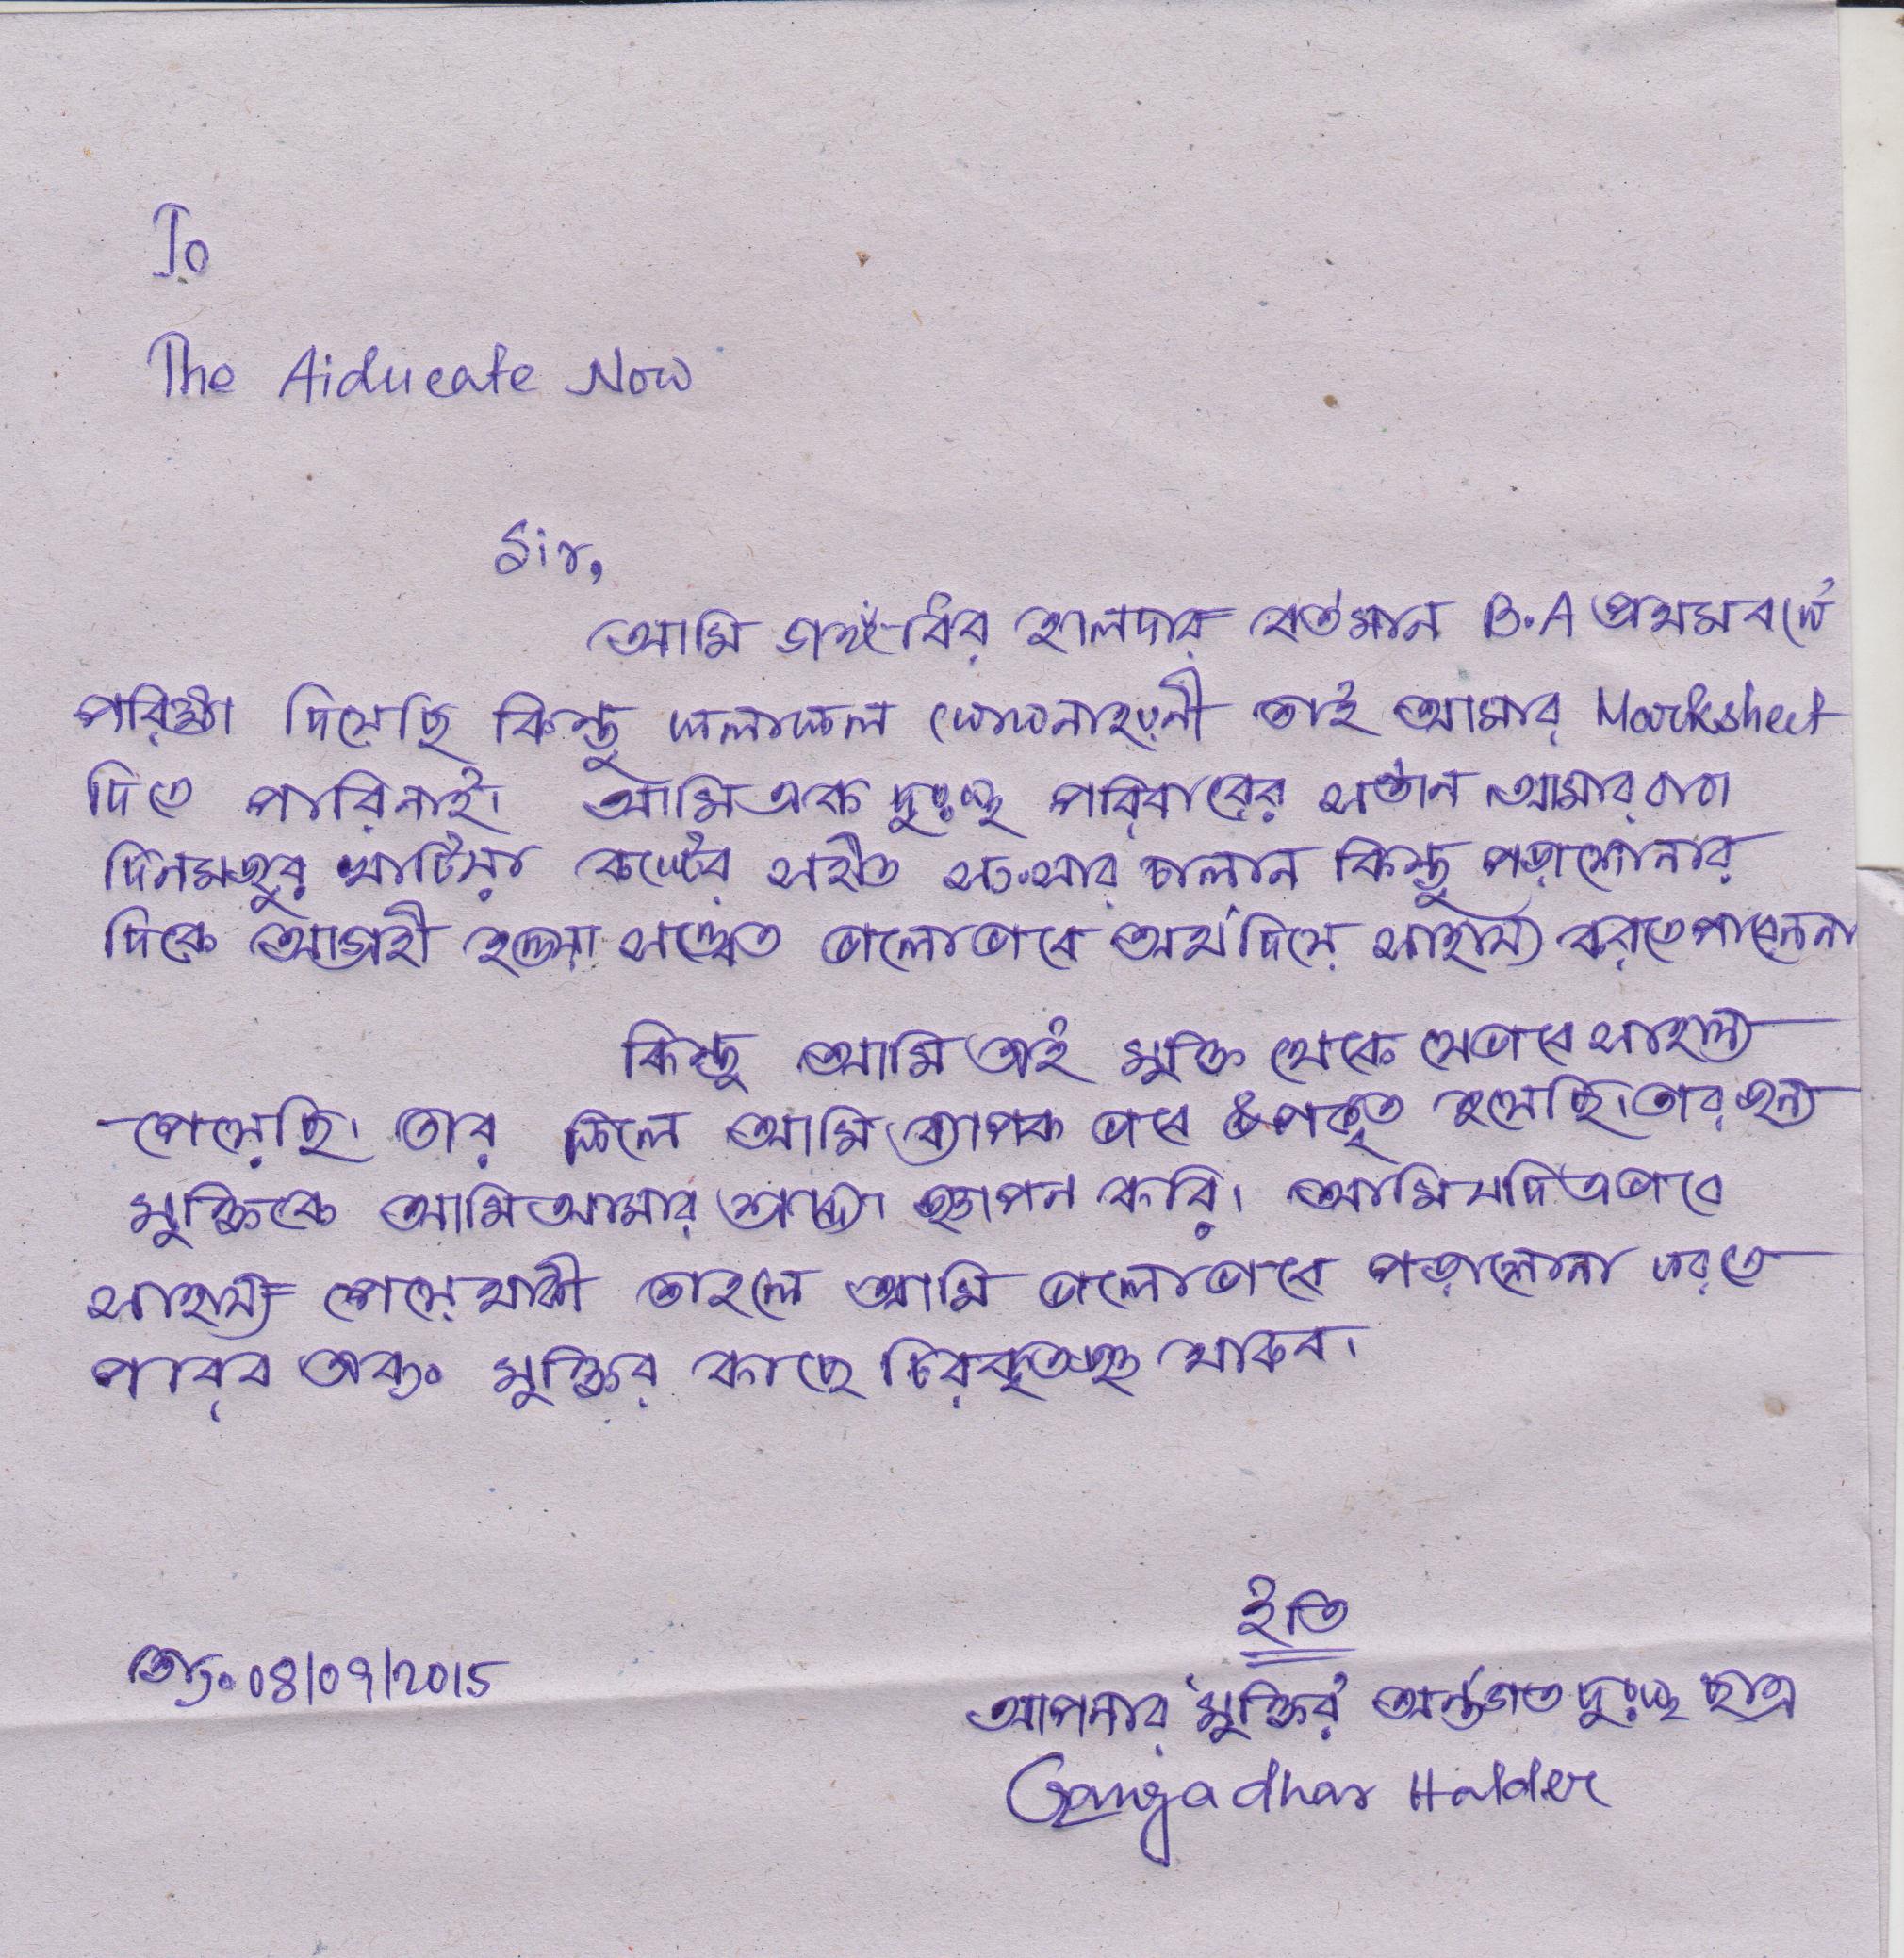 To
The Aiducate Now
Sir,
আমি গঙ্গাধর হালদার বর্তমান B.A প্রথমবর্ষে
পরিক্ষা দিয়েছি কিন্তু ফলাফল ঘোষনাহয়নী তাই আমার Marksheet
দিতে পারিনাই। আমি এক দুঃস্থ পরিবারের সন্তান আমার বাবা
দিনমজুর খাটিয়া কষ্টের সহীত সংসার চালান কিন্তু পড়াশোনার
দিকে আগ্রহী হওয়া সত্ত্বেত ভালোভাবে অর্থদিয়ে সাহায্য করতে পারেননা
কিন্তু আমি এই মুক্তি থেকে যেভাবে সাহায্য
পেয়েছি। তার ফলে আমি ব্যাপক ভাবে উপকৃত হয়েছি। তার জন্য
মুক্তিকে আমি আমার শ্রদ্ধা জ্ঞাপন করি। আমি যদি এভাবে
সাহায্য পেয়ে থাকী তাহলে আমি ভালোভাবে পড়াশোনা করতে
পারব এবং মুক্তির কাছে চিরকৃতজ্ঞ থাকব।
ইতি
তাং 08/09/2015
আপনার 'মুক্তির' অর্ন্তগত দুঃস্থ ছাত্র
Gangadhar Halder